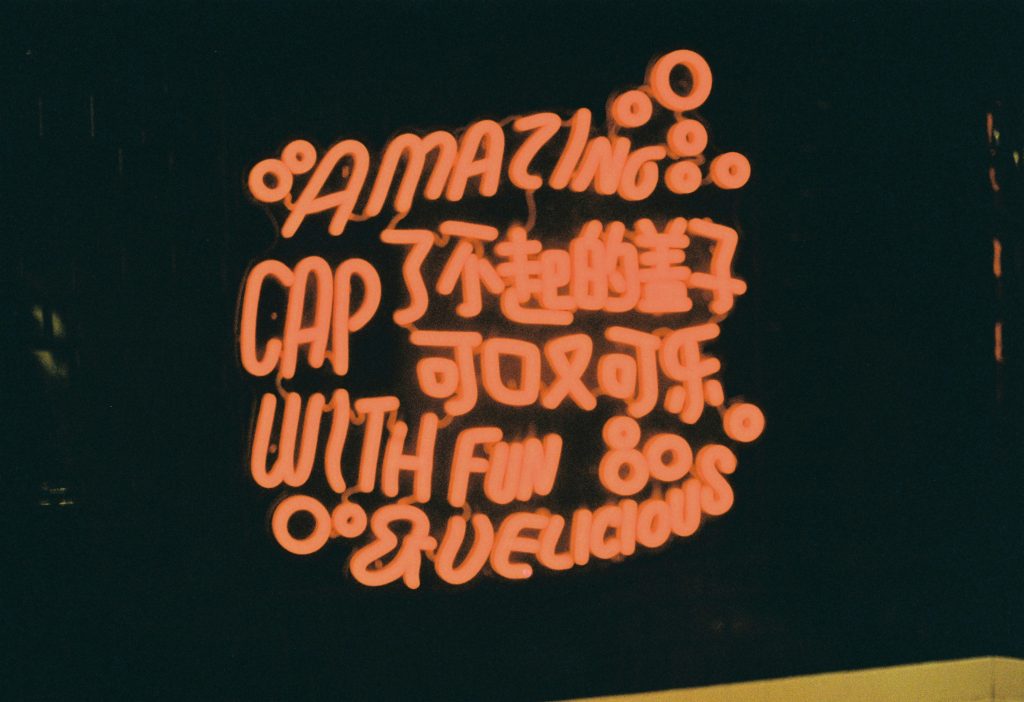 AMAZING
CAP 了不起的盖子
可口又可乐
WITH FUN
& DELICIOUS